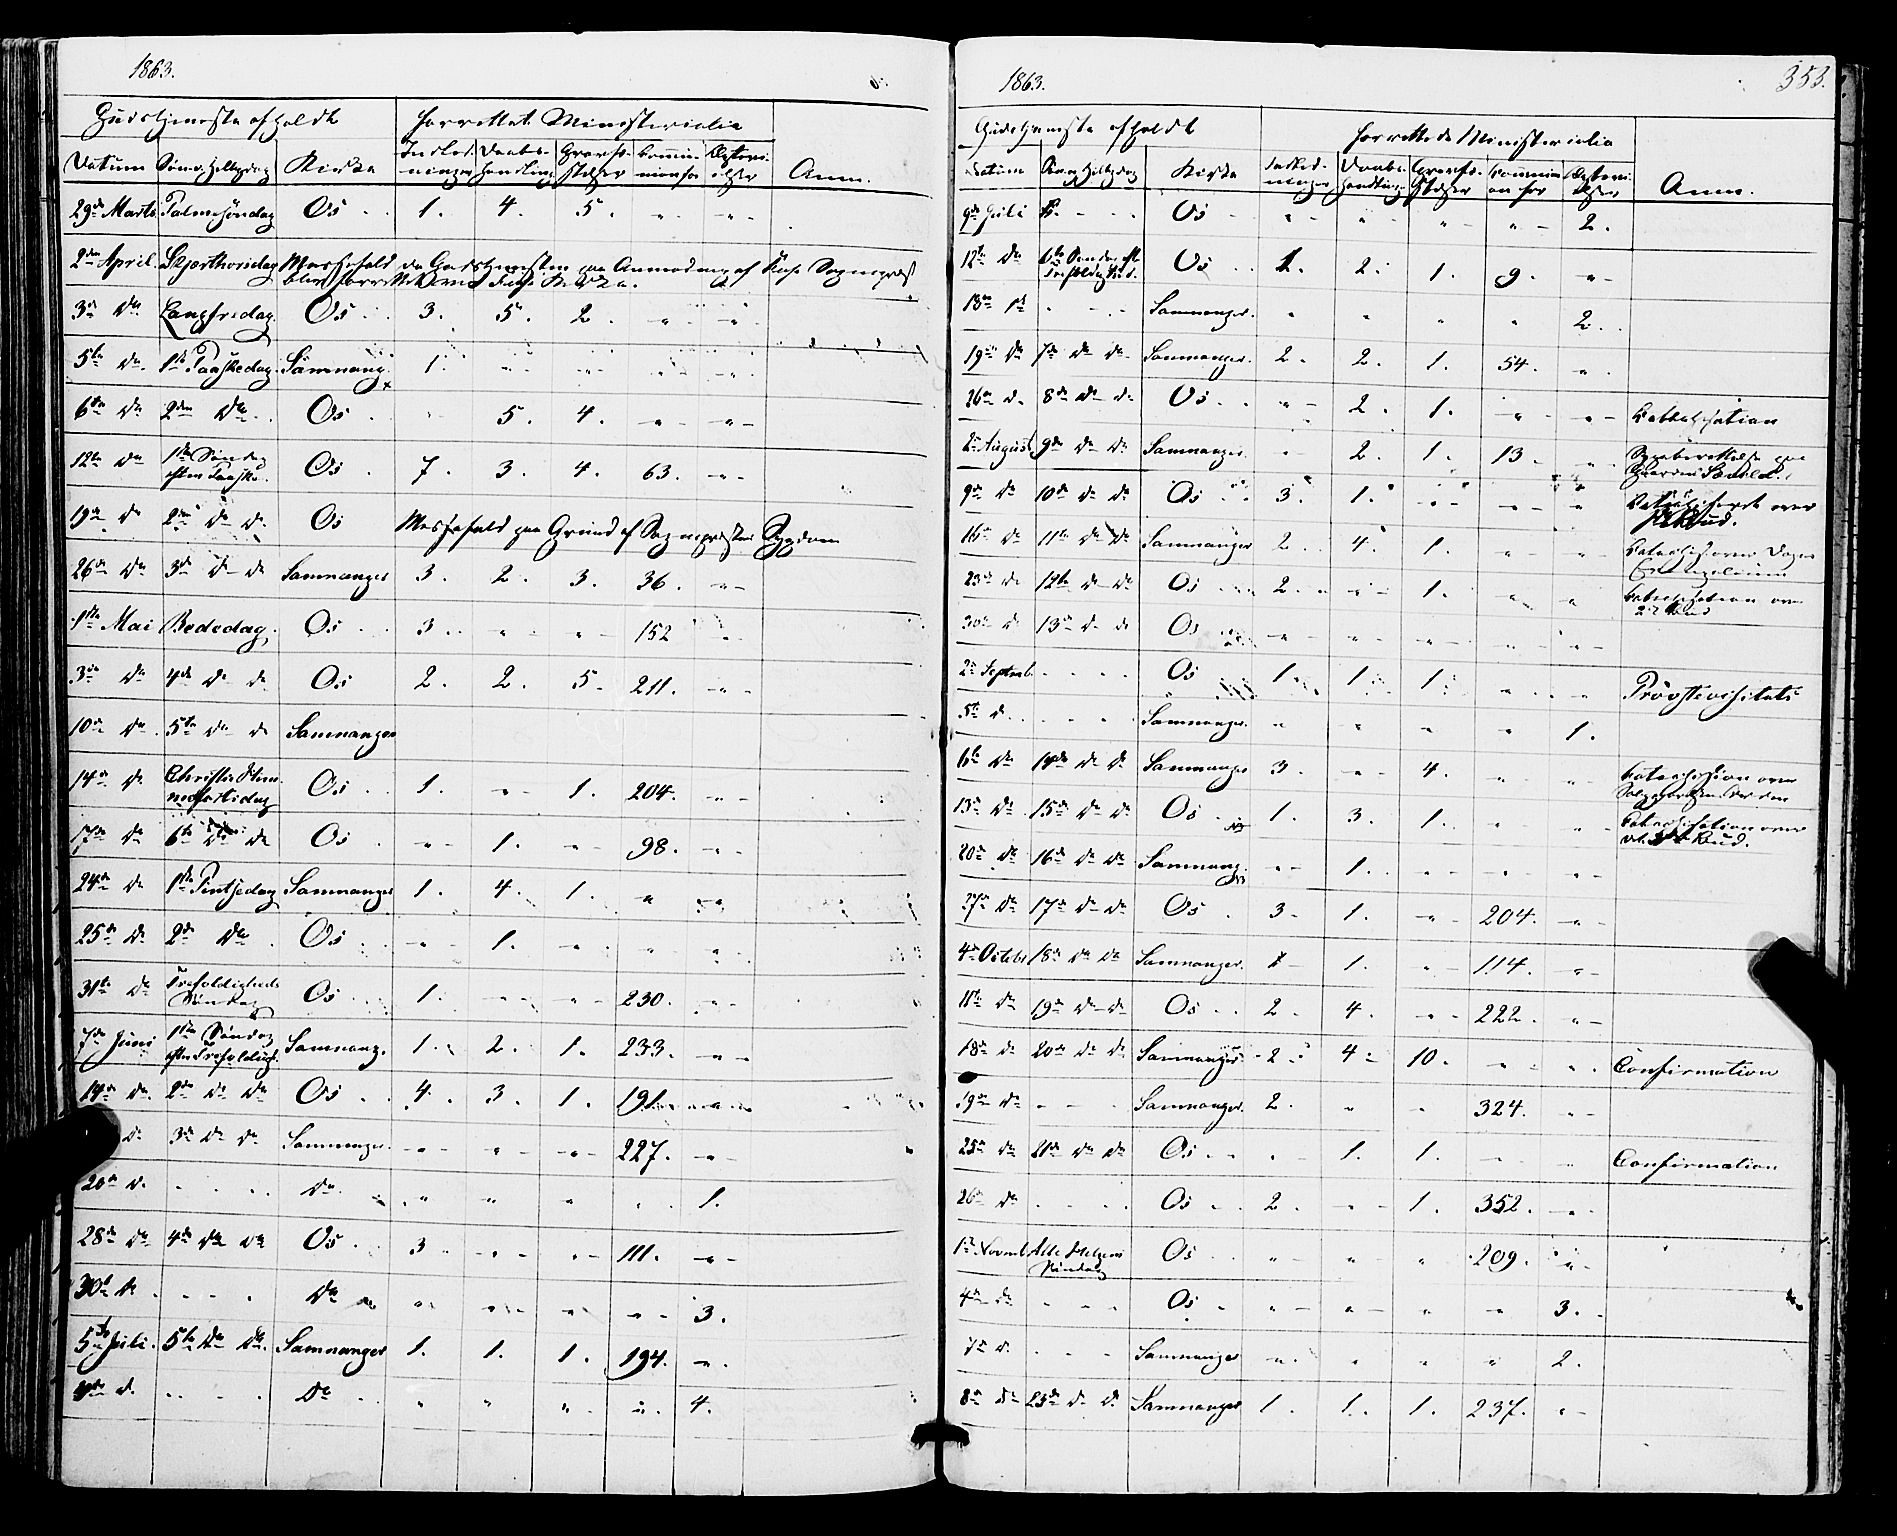 1863.
Gudstjeneste afholdt Forrettet Ministerialia
Datum Søn & Helligdag Kirke Indled-ninger Daabs-handling Gravfæ-stelser Commu-nion for Ægtevi-elser Anm.
29de Marts Palmesöndag Os 1. 4. 5. " "
2den April. Skjærthorsdag Messefald da Gudstjenesten paa Anmodning af Sognepræst
blev forrettet Kirke.
3die Do Langfredag Os 3. 5. 2. " "
5te Do. 1ste Paaskedag Samnang. 1. " " " "
6te Do 2den Do. Os " 5. 4. " "
12te Do 1ste Søndag
efter Paaske. Os 7. 3. 4. 63. "
19de Do 2den Do Do. Os Messefald paa Grund af Sognepræstens Sygdom
26de Do 3die Do Do Samnanger 3. 2. 3. 36. "
1ste Mai Bededag. Os 3. " " 152 "
3die Do 4de Do Do Os 2. 2. 5. 211. "
10de Do. 5te Do Do Samnanger
14de Do Christi Him-
melfartsdag Os 1. " 1. 204. "
17de Do 6te Do Do Os " 1. " 98. "
24de Do 1ste Pintsedag Samnanger 1. 4. 1. " "
25de Do 2den Do Os " 1. " " "
31te Do Trefoldigheds
Søndag Os 1. " " 230. "
7de Juni 1ste Søndag
efter Trefoldigh. Samnang. 1. 2. 1. 233. "
14de Do. 2den Do Do Os 4. 3. 1. 191. "
Do 3die Do Do Samnanger. " " " 227. "
20de Do. Do " " " " 1.
28de Do 4de Do Do Os 3 " " 111. "
30te Do. Do " " " " 3.
5te Juli. 5te Do Do. Samnanger 1. 1. 1. 194. "
Do Do " " " " 4.
1863. 353.
Gudstjeneste afholdt Forrettede Ministerialia
Datum Søn & Helligdag Kirke Indled-ninger Daabs-handling Gravfæ-stelser Commu-nion for Ægtevi-elser Anm.
9de Juli Os " " " " 2.
12te Do 6te Søndag eft.
Trefoldighed. Os 1. 2. 1. 9. "
Samnanger. " " " " 2.
19de Do 7de Do Do Samnanger. 2. 2. 1. 54. "
26de Do 8de Do Do Os " 2. 1. " " Catechisation
2den August 9de Do Do Samnanger. " 2. 1. 13. "
9de Do 10de Do Do Os 3. 1. " " " Catechiseret over
Bud.
16de Do 11te Do Do Samnanger 2. 4. 1. " " Catechis. over Dagens
Evangelium
23de Do 12te Do Do Os 2. " 1. " " Catechisation over
2det Bud
30te Do 13de Do Do Os " " " " "
2den Septemb. Os 1. 1. 1. " " Pröostevisitats
5te Do. Samnanger. " " " " 1.
6te Do 14de Do Do Samnanger 3. " 4. " " Catechisation over
13de Do 15de Do Do Os 1. 3. 1. " " Catechisation over
Bud.
20de Do 16de Do Do Samnang. " 1. " " "
27de Do 17de Do Do Os 3. 1. " 204. "
4de Octobr 18de Do Do Samnanger. 1. 1. " 114. "
11te Do 19de Do Do Os 2. 4. " 222. "
18de Do 20de Do Do Samnanger. 2. 4. 10. " " Confirmation
19de Do Samnanger. 2. " " 324. "
25de Do 21de Do Do Os " 1. 1. " " Confirmation
26de Do Os 2. " 1. 352. "
1ste Novmb Alle Helgens
Søndag Os " " " 209. "
4de Do Os " " " " 3.
7de Do. Samnanger " " " " 2.
8de Do 23de Do Do Samnanger 1. 1. 1. 237. "